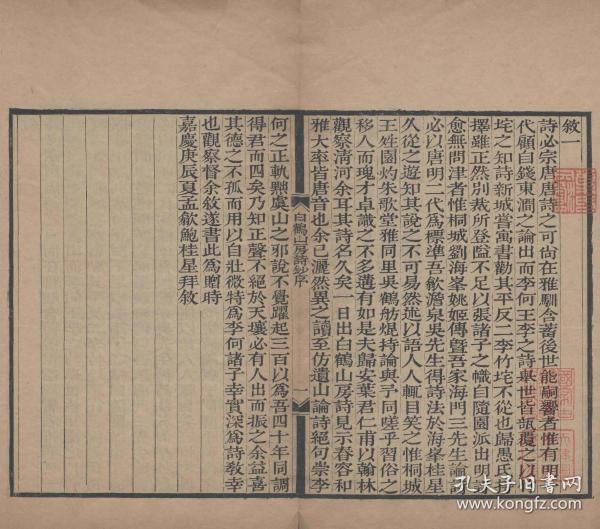 敘一
詩必宗唐唐詩之可尚在雅馴含蓄後世能嗣響者惟有明一
代顧自錢東澗之論出而李何王李之詩舉世皆瓿覆之以
垞之知詩新城嘗寓書勸其平反二李竹垞不從也歸愚氏
擇雖正然別裁所登隘不足以張諸子之幟自隨園派出明
愈無問津者惟桐城劉海峯姚姬傳曁吾家海門三先生論詩
必以唐明二代為標準吾歙澹泉吳先生得詩法於海峯桂星
久從之遊知其說之不可易然遊以語人人輒目笑之惟桐城
王姓園灼朱歌堂雅同里吳鶴舫焜持論與予同嗟乎習俗之
移人而瑰才卓識之不多遘有如是夫歸安葉君仁甫以翰林
觀察淸河余耳其詩名久矣一日出白鶴山房詩見示春容和
雅大率皆唐音也余已灑然異之讀至仿遺山論詩絕句崇李
白鶴山房詩鈔序
一
何之正軌黜虞山之邪說不覺躍起三百以為吾四十年同調
得君而四矣乃知正聲不絕於天壤必有人出而振之余益喜
其德之不孤而用以自壯微特為李何諸子幸實深為詩敎幸
也觀察督余敘遂書此為贈時
嘉慶庚辰夏孟歙鮑桂星拜敘
孔夫子旧书网
kongfz.com